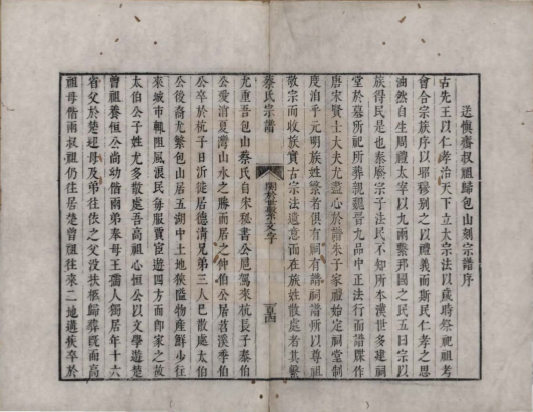 送慎齋叔祖歸包山刻宗譜序
古先王以仁孝治天下立大宗法以歲時祭祀祖考
會合宗族序以昭穆別之以禮義而斯民仁孝之思
油然自生周禮太宰以九兩繫邦國之民五曰宗以
族得民是也秦廢宗子法民不知所本漢世多建祠
堂於墓所祀所葬親魏晉九品中正法行而譜牒作
唐宋賢士大夫尤盡心於譜朱子家禮始定祠堂制
度洎乎元明族姓繁者俱有祠有譜祠譜所以尊祖
敬宗而收族實古宗法遺意而在族姓散處者其繫
蔡氏宗譜
關於世繫文字
尤重吾包山蔡氏自宋秘書公扈駕來杭長子泰伯
公愛消夏灣山水之勝而居之仲伯公居苕溪季伯
公卒於杭子日沂徙居德清兄弟三人已散處太伯
公後裔尤繁包山居五湖中土地狹隘物産鮮少往
來城市輒阻風浪民每服賈宦遊四方而卽家之故
太伯公子姓尤多散處吾高祖心恒公以文學遊楚
曾祖養恒公尚幼偕兩弟奉母王孺人獨居年十六
省父於楚迎母及弟往依之父没扶櫬歸葬旣而高
祖母偕兩叔祖仍住居楚曾祖往來二地遘疾卒於